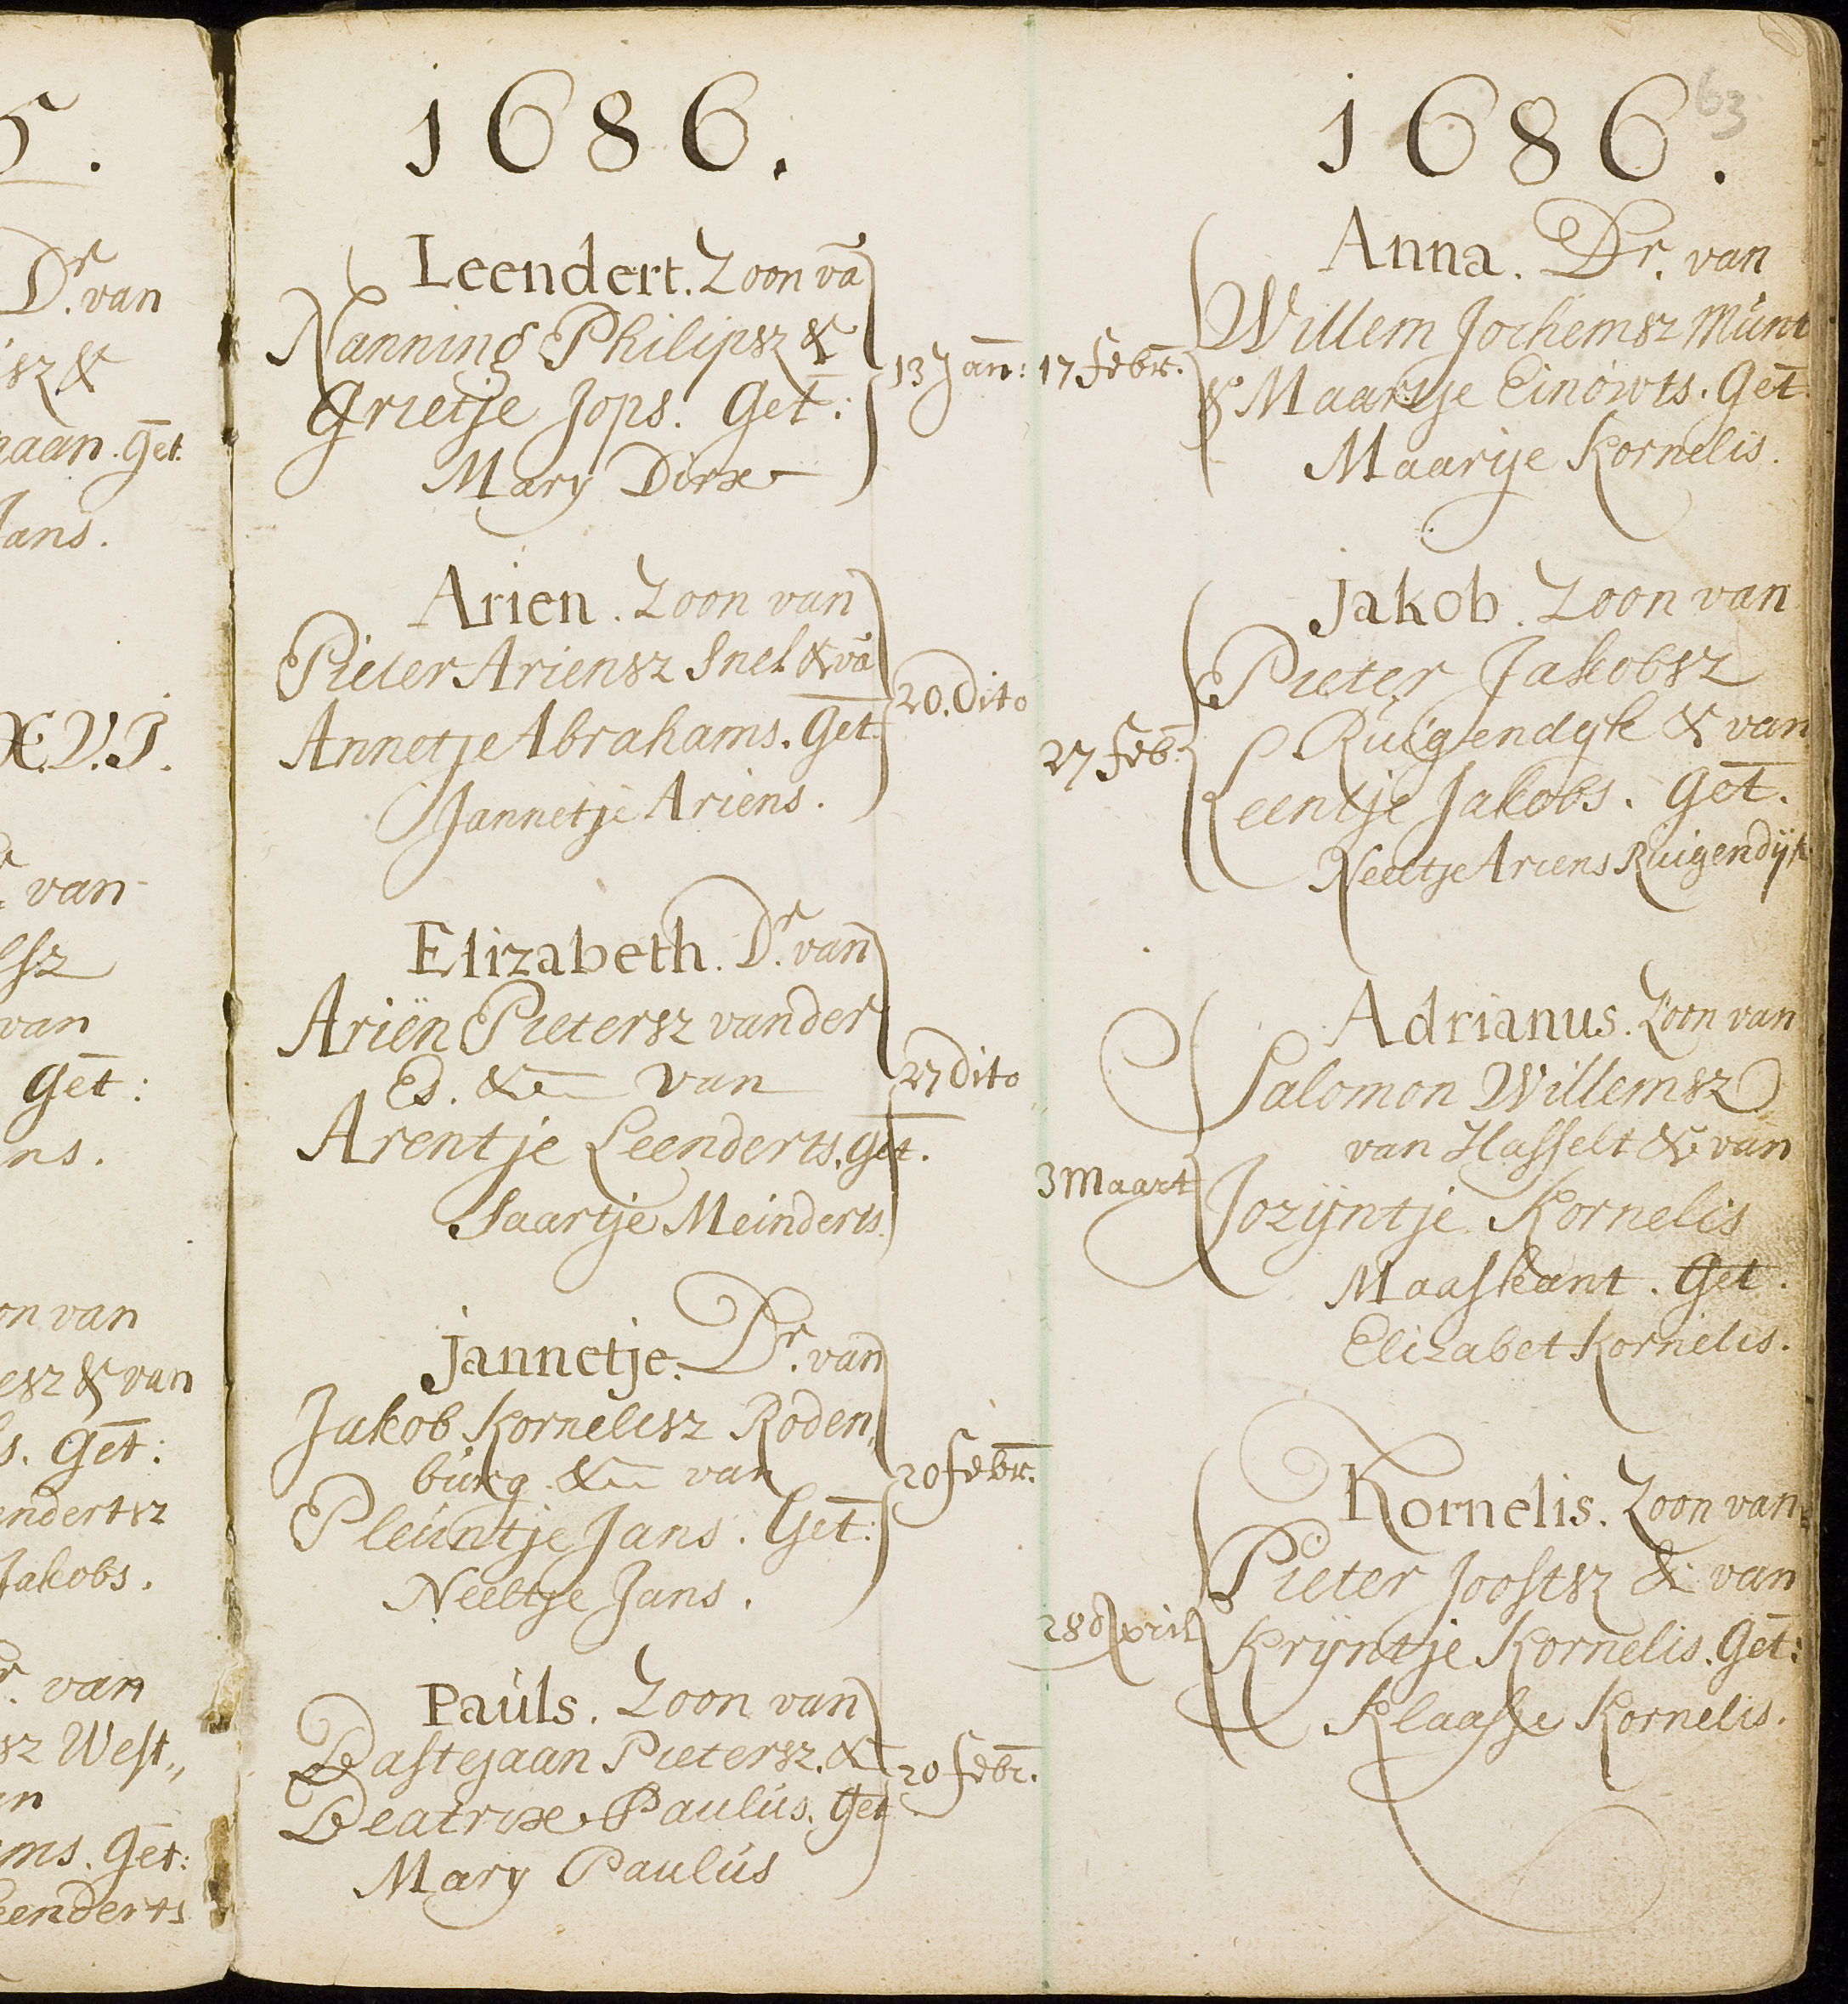 5.
Dr. van
sz &
aan. Get.
Jans.
X.V.I.
van
lsz
van
Get:
ns.
on van
esz & van
s. Get:
endertsz
Jakobs.
r. van
sz West,,
an
ms. Get:
eenderts
1686.
Leendert. Zoon vā
Nanning Philipsz &
Grietje Jops. Get:
Mary Dirx
13 Jan:
Arien. Zoon van
Pieter Ariensz Snel & vā
Annetje Abrahams. Get.
Jannetje Ariens.
20. Dito
Elizabeth. Dr. van
Ariën Pietersz vander
Es. & van
Arentje Leenderts. Get.
Saartje Meinderts.
27 Dito
Jannetje. Dr. van
Jakob Kornelisz Roden,,
burg. & van
Pleuntje Jans. Get:
Neeltje Jans.
20 Febr.
Pauls. Zoon van
Bastejaan Pietersz. &
Beatrix Paulus. Get
Mary Paulus
20 Febr.
63
1686.
Anna. Dr. van
Willem Jochemsz Munt
& Maartje Einowts. Get.
Maartje Kornelis.
17 Febr.
Jakob. Zoon van
Pieter Jakobsz
Ruigendyk & van
Leentje Jakobs. Get.
Neeltje Ariens Ruigendijk
27 Feb:
Adrianus. Zoon van
Salomon Willemsz
van Hasselt & van
Jozijntje Kornelis
Maaskant. Get.
Elizabet Kornelis.
3 Maart
Kornelis. Zoon van
Pieter Joostsz & van
Krijntje Kornelis. Get:
Klaasje Kornelis.
28 April